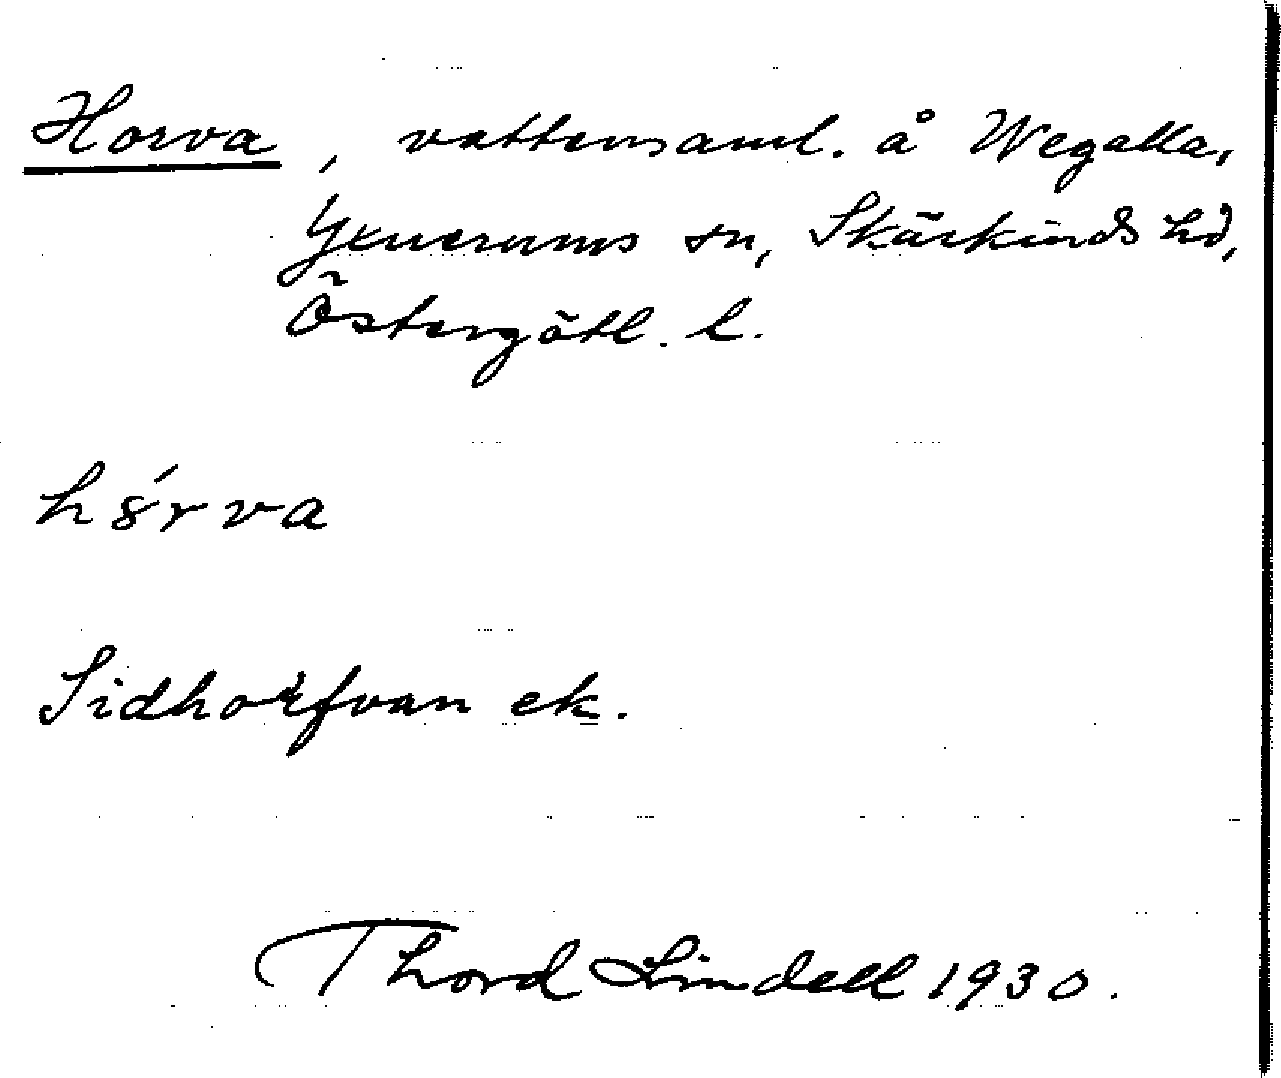 Horva, vattensaml. å Wegalla,
Yxnerums sn, Skärkinds hd,
Östergötl. l.
hórva
Sidhorfvan ek.
Thord Lindell 1930.